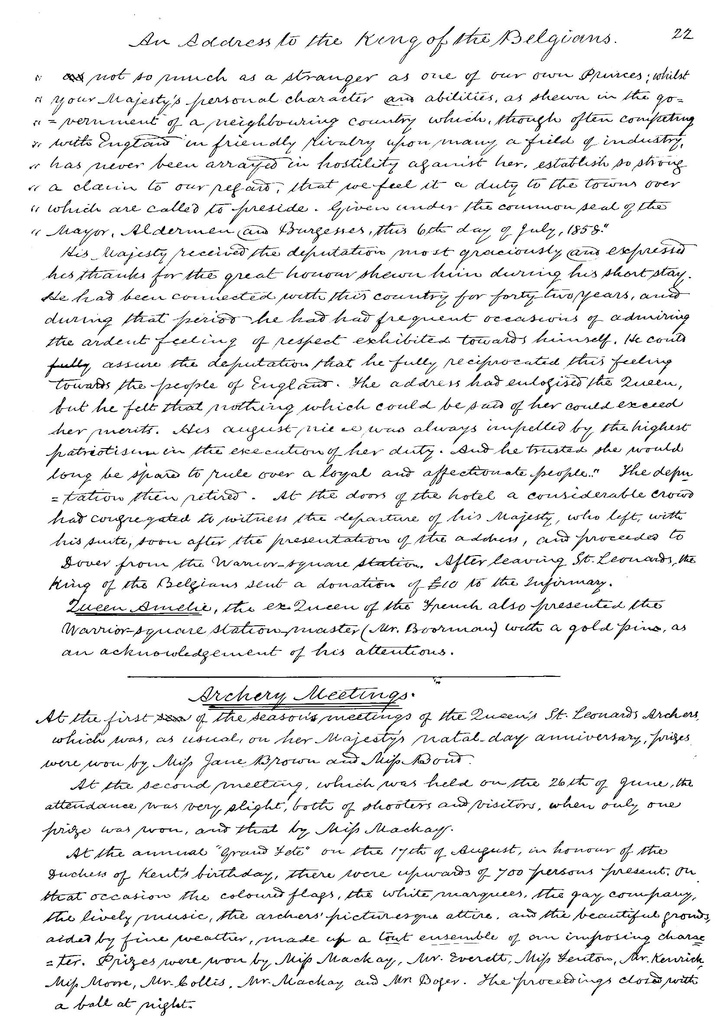 An Address to the King of the Belgians. 22
" not so much as a stranger as one of our own Princes; whilst
" your Majesty's personal character and abilities, as shewn in the go=
" =vernment of a neighbouring country which, though often competing
" with England in friendly rivalry upon many a field of industry,
" has never been arrayed in hostility against her, establish so strong
" a claim to our regard, that we feel it a duty to the towns over
" which are called to preside. Given under the common seal of the
" Mayor, Aldermen and Burgesses, this 6th day of July, 1858."
His Majesty received the deputation most graciously and expressed
his thanks for the great honour shewn him during his short stay.
He had been connected with this country for forty two years, and
during that period he had had frequent occasions of admiring
the ardent feeling of respect exhibited towards himself. He could
fully assure the deputation that he fully reciprocated this feeling
towards the people of England. The address had eulogised the Queen,
but he felt that nothing which could be said of her could exceed
her merits. His august niece was always impelled by the highest
patriotism in the execution of her duty. And he trusted she would
long be spared to rule over a loyal and affectionate people." The depu
=tation then retired. At the doors of the hotel a considerable crowd
had congregated to witness the departure of his Majesty, who left, with
his suite, soon after the presentation of the address, and proceeded to
Dover from the Warrior-square station. After leaving St. Leonards, the
King of the Belgians sent a donation of £10 to the Infirmary.
Queen Amelie, the ex Queen of the French also presented the
Warrior-square station-master (Mr. Boorman) with a gold pin, as
an acknowledgement of his attentions.
Archery Meetings.
At the first of the season's meetings of the Queen's St. Leonards Archers,
which was, as usual, on her Majesty's natal-day anniversary, prizes
were won by Miss Jane Brown and Miss Bond.
At the second meeting, which was held on the 26th of June, the
attendance was very slight, both of shooters and visitors, when only one
prize was won, and that by Miss Mackay.
At the annual "Grand Fete" on the 17th of August, in honour of the
Duchess of Kent's birthday, there were upwards of 700 persons present. On
that occasion the coloured flags, the white marquees, the gay company,
the lively music, the archers' picturesque attire, and the beautiful grounds,
aided by fine weather, made up a tout ensemble of an imposing charac=
=ter. Prizes were won by Miss Mackay, Mr. Everett, Miss Fenton, Mr. Kenrick,
Miss Moore, Mr. Collis, Mr. Mackay and Mr. Doger. The proceedings closed with
a ball at night.